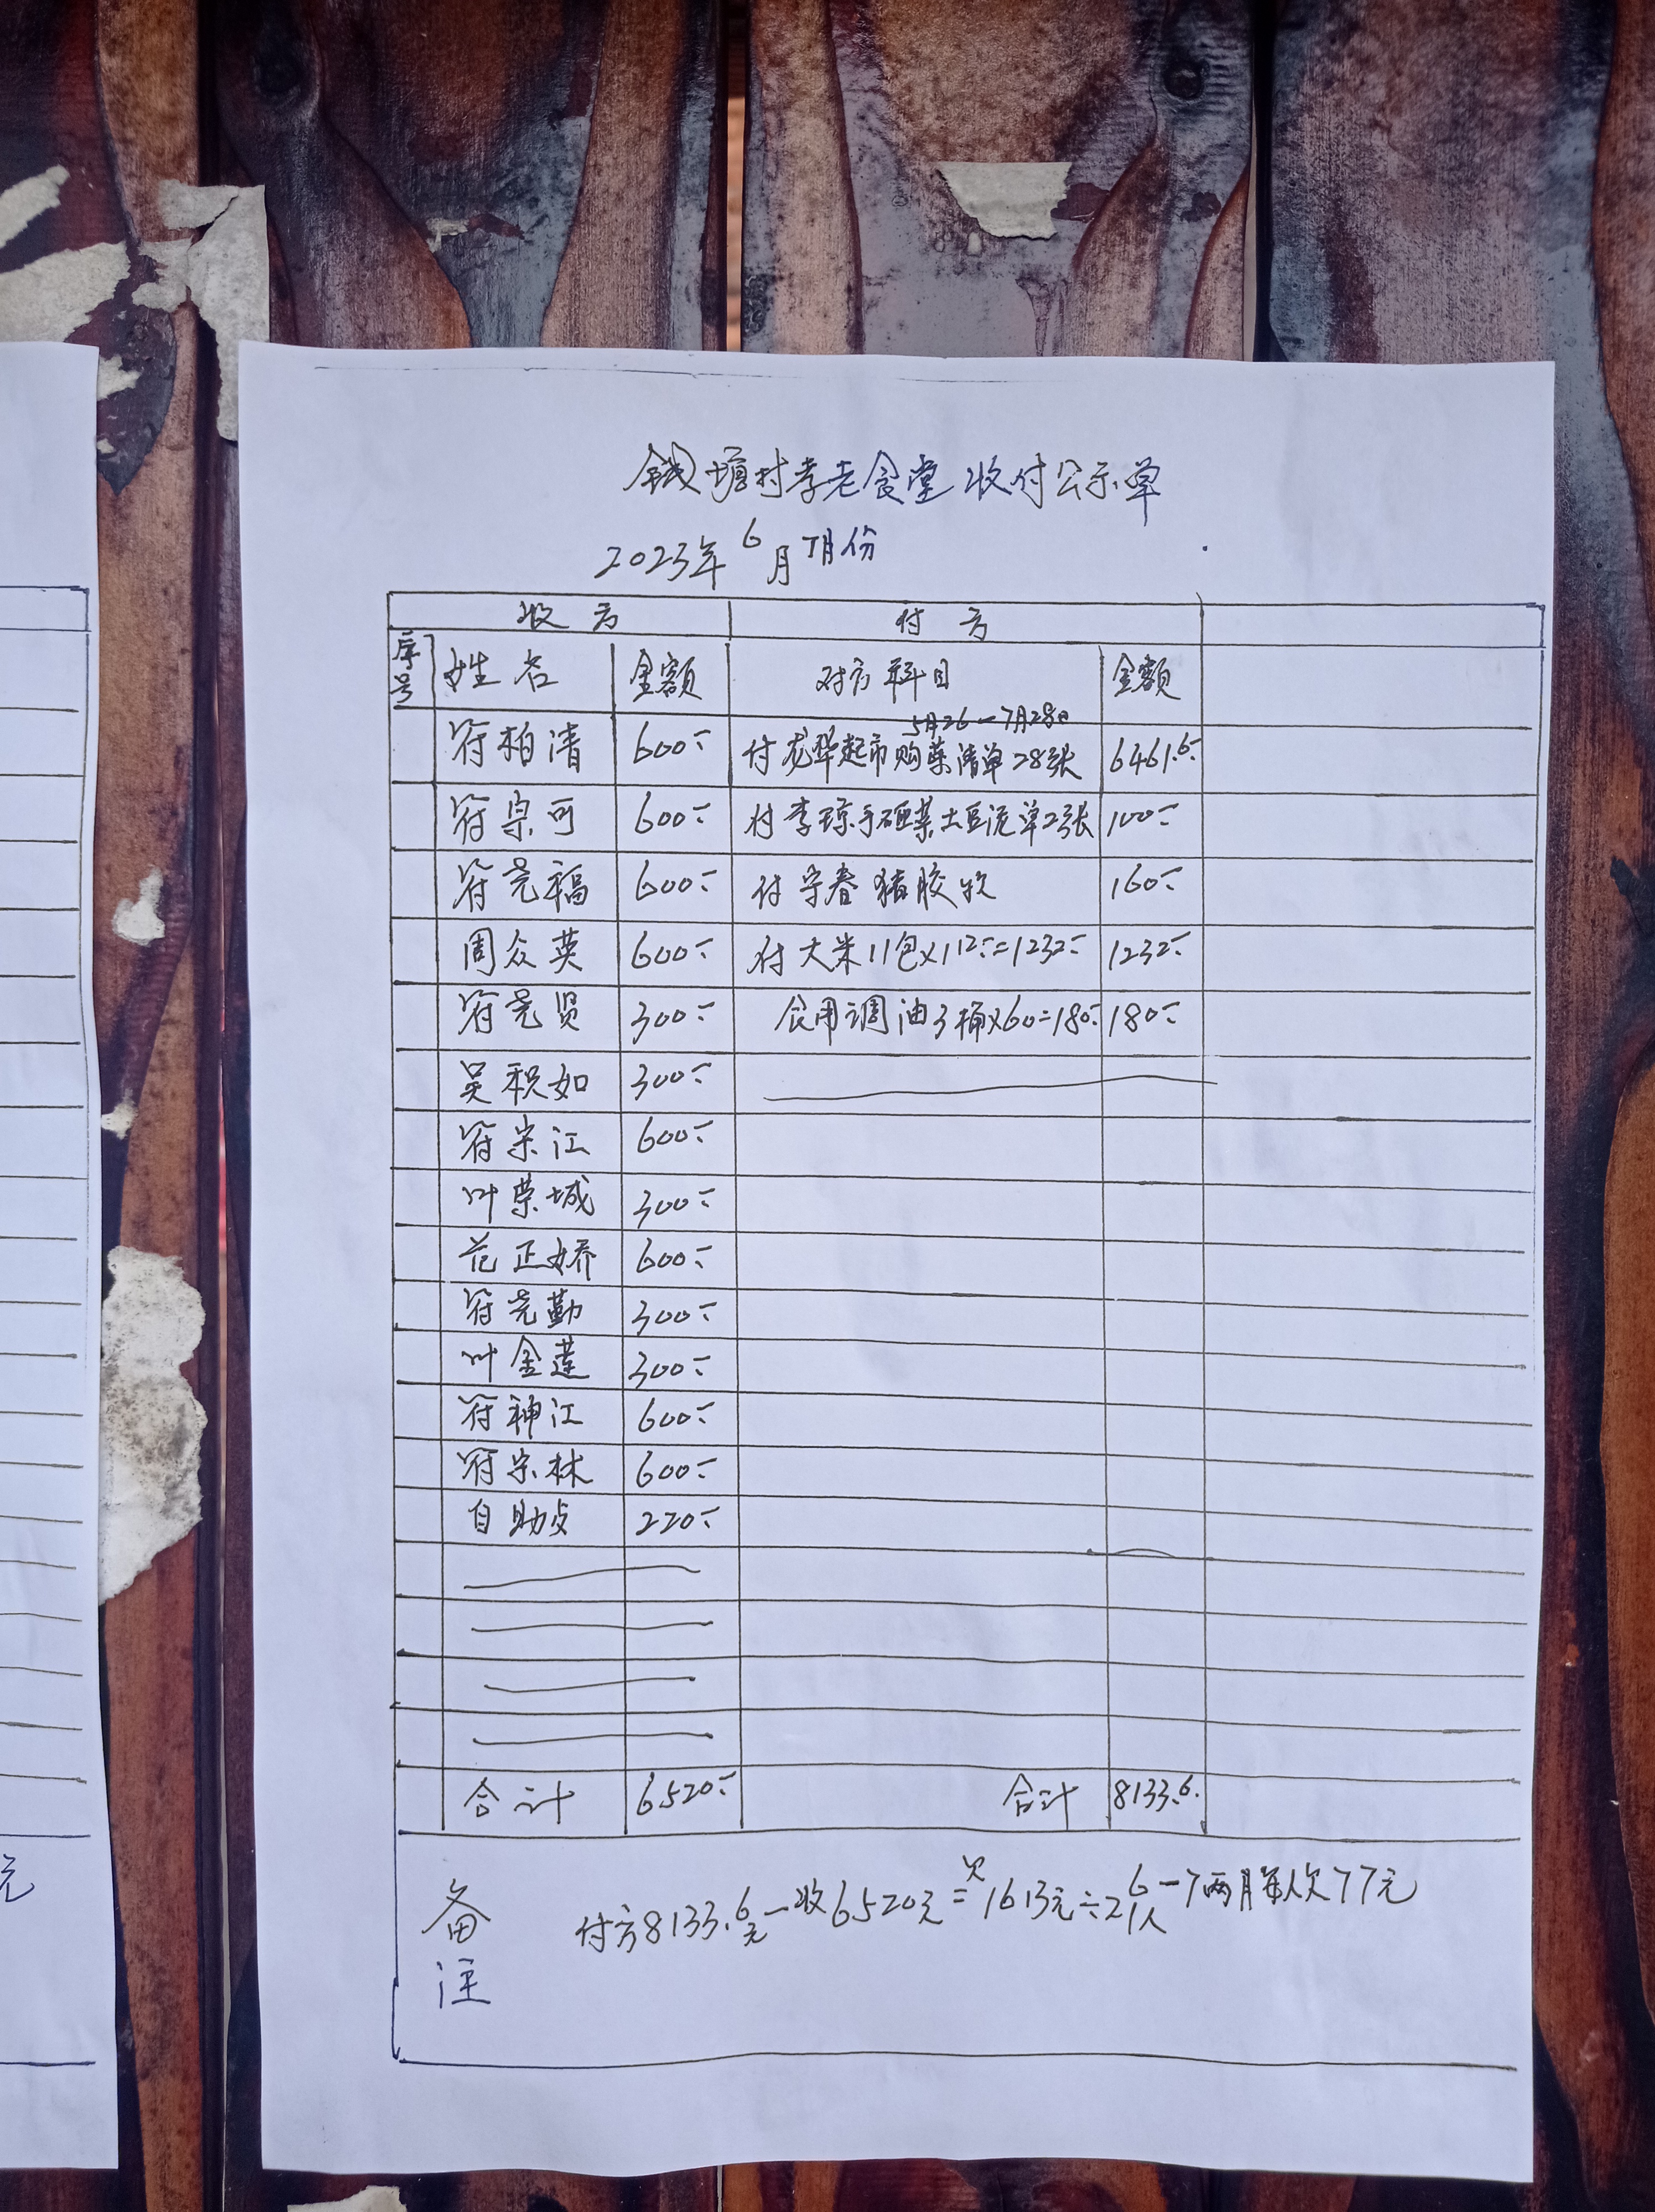 钱塘村孝老食堂收付公示单
2023年6月7月份
收方 付方
序号 姓名 金额 对方科目 金额
符柏清 600 付龙华超市购菜清单28张 5月26—7月28日 6461.6
符宗可 600 付李琼手碾菜土豆 单2张 100
符尧福 600 付宇春猪胶 160
周众英 600 付大米11包×112=1232 1232
符尧贤 300 食用调油3桶×60=180 180
吴积如 300
符宗江 600
叶荣城 300
范正娇 600
符尧勤 300
叶金莲 300
符神江 600
符宗林 600
自助点 220
合计 6520 合计 8133.6
备注
付方8133.6元—收6520元=欠1613元÷21人 6—7两月每人欠77元
元